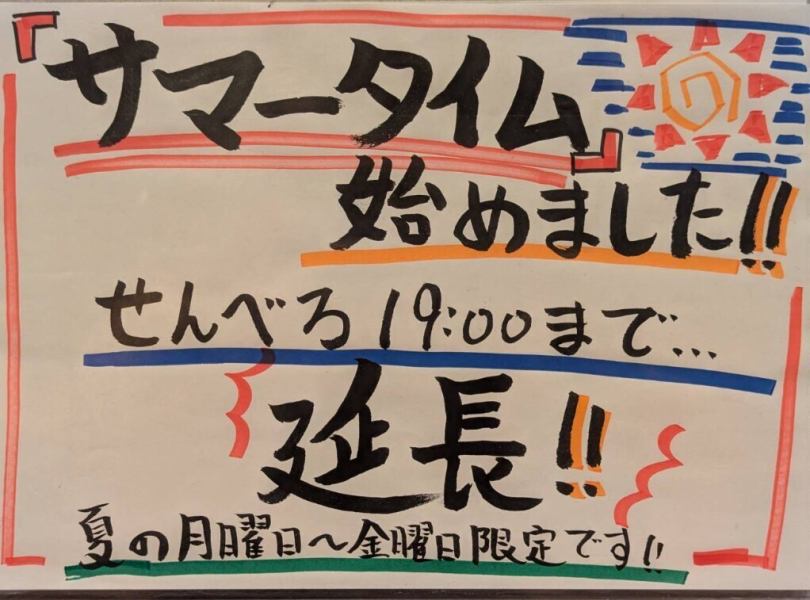 『サマータイム』
始めました!!
せんべろ19:00まで...
延長!!
夏の月曜日～金曜日限定です!!